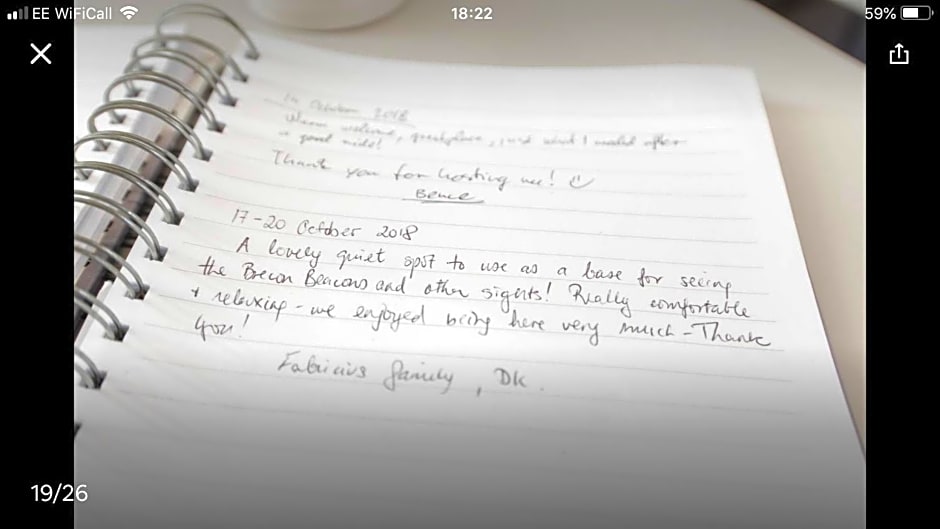 EE WiFiCall
18:22
59%
14 October 2018
Warm welcome, great place, just what I needed after
a good ride!
Thank you for hosting me!
Bence
17-20 October 2018
A lovely quiet spot to use as a base for seeing
the Brecon Beacons and other sights! Really comfortable
+ relaxing - we enjoyed being here very much - Thank
you!
Fabricius family, DK.
19/26